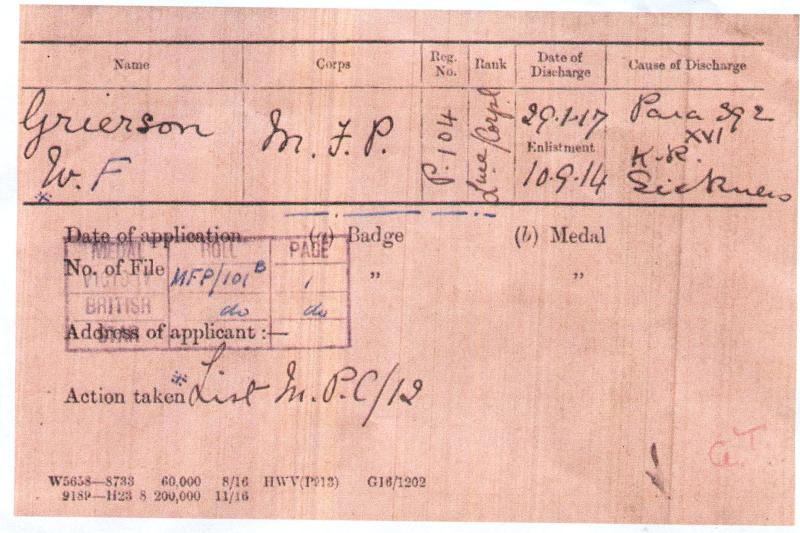 Name Corps Reg. No. Rank Date of Discharge Cause of Discharge
Grierson M.F.P. P.104 Lnce Corpl 29.1.17 Para 392
XVI
Enlistment K.R.
W.F 10.9.14 Sickness
Date of application (a) Badge (b) Medal
MEDAL ROLL PAGE
No. of File " "
VICTORY MFP/101B 1
BRITISH do do
Address of applicant :—
STAR
Action taken List M.P.C/12
G.T.
W5658—8733 60,000 8/16 HWV(P913) G16/1202
9189—H23 8 200,000 11/16